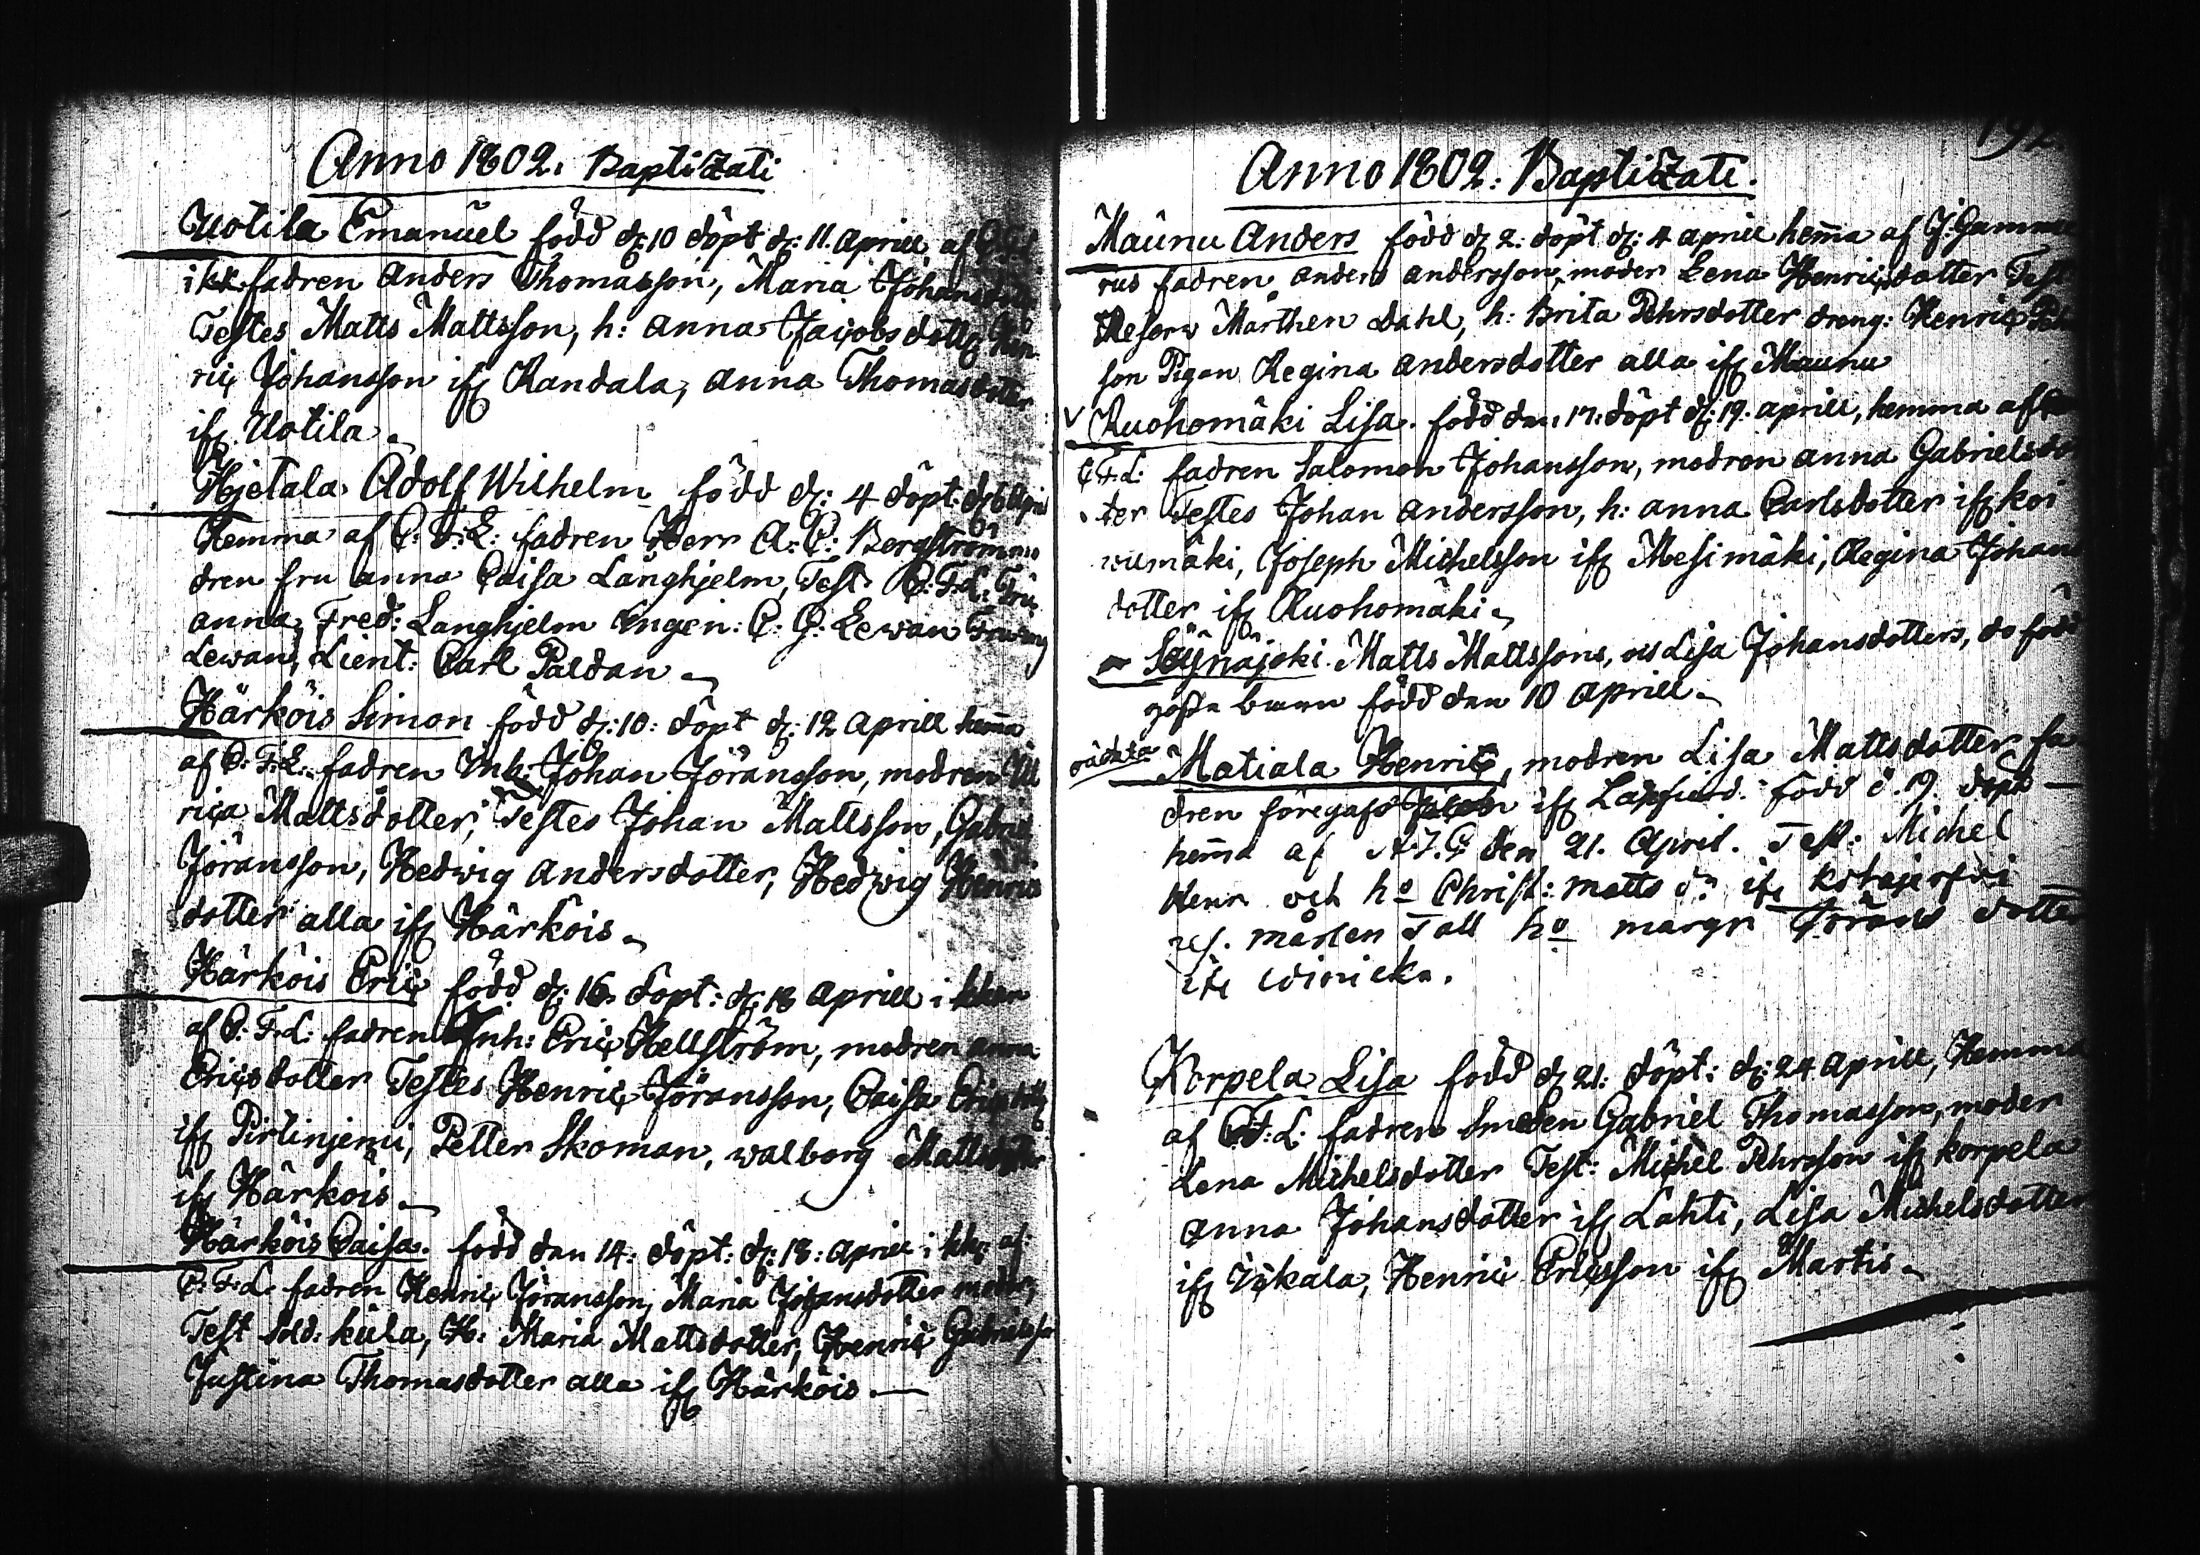 Anno 1802. Baptizati
Uotila Emanuel född d: 10 döpt d: 11. Aprill af
i kk. fadren Anders Thomasson, Maria Johansdott
Testes Matts Mattsson, h: Anna Jacobsdotter Hen
ric Johansson ifr Randala, Anna Thomasdotter
ifr Uotila
Hjetala Adolf Wilhelm född d: 4 döpt d: 6 Apri
Hemma af C: F: L: fadren Herr A: C: Bergström mo
dren fru Anna Caisa Långhjelm, Test. C: F: L: Fru
Anna Fred: Langhjelm Ingen: C: G: Lewan
Lewan, Lieut: Carl Paldan
Härköis Simon född d: 10: döpt d: 12 Aprill hema
af C: F: L: fadren Inh: Johan Jöransson, modren Ul
rica Mattsdotter, Testes Johan Mattsson, Gabriel
Jöransson, Hedwig Andersdotter, Hedwig Henrics
dotter alla ifr Härköis
Härköis Eric född d: 16. döpt: d: 18 Aprill i kkan
af C: F: L: fadren Inh: Eric Hellström, modren Anna
Ericsdotter Testes Henric Jöransson, Caisa Ericsdott
ifr Pirtinjemi, Petter Skoman, Walborg Mattsdotter
ifr Härköis
Härköis Caisa. född den 14: döpt: d: 18: Aprill i kk: af
C: F: L. fadren Henric Jöransson, Maria Johansdotter modr,
Test Sold: Kula, H: Maria Mattsdotter, Henric Gabrielsson
Justina Thomasdotter alla ifr Härköis
192
Anno 1802: Baptizati.
Maunu Anders född d 2: döpt d: 4 Aprill hema af J: Gamma
rus fadren Anders Andersson, moder Lena Henricsdotter Test
Reserv Mårthen Dahl, h: Brita Pehrsdotter dreng: Henric Peh
son Pigan Regina Andersdotter alla ifr Maunu
Ruohomäki Lisa. född den 17: döpt d: 19. Aprill, hemma af
C F: L: fadren Salomon Johansson, modren Anna Gabrielsdot
ter Testes Johan Andersson, h: Anna Carlsdotter ifr Koi
wumäki, Joseph Michelsson ifr Mesimäki, Regina Johans
dotter ifr Ruohomäki
Seynäjoki Matts Mattssons, Lisa Johansdotters, dö föd
gosse barn född den 10 Aprill
oächta Matiala Henric, modren Lisa Mattsdotter fa
dren föregafs ifr Lapfierd. född d. 9. döpt
hema af A. J. G den 21. April. Test: Michel
Henr och ho Christ: Matts dr ifr
res. Mårten Tall ho Margr Jörans dotter
ifr Winicka.
Korpela Lisa född d 21: döpt: d: 24 Aprill, Hemma
af C F: L: fadren Smeden Gabriel Thomasson, moder
Lena Michelsdotter Test: Michel Pehrsson ifr Korpela
Anna Johansdotter ifr Lahti, Lisa Michelsdotter
ifr Yckala, Henric Ericsson ifr Martis